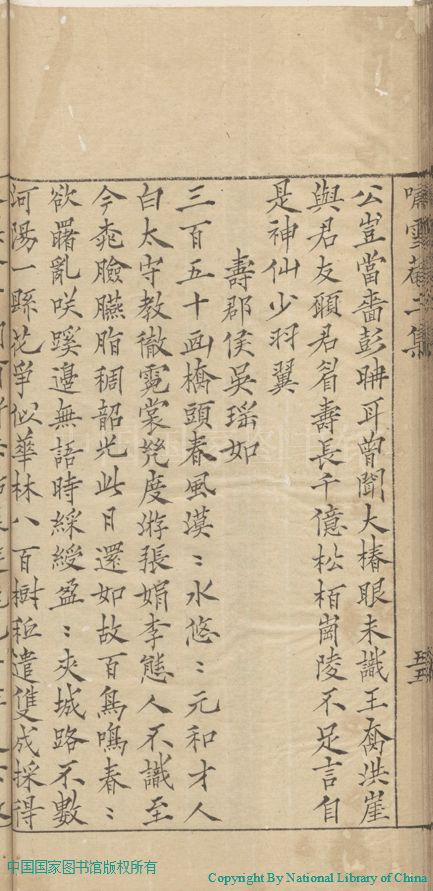 嘯雪菴二集
五五
公豈當嗇彭𦕈耳曾聞大椿眼未識王喬洪崖
與君友願君眉壽長千億松栢崗陵不足言自
是神仙少羽翼
壽郡侯吳瑶如
三百五十画橋頭春風漠〻水悠〻元和才人
白太守教徹霓裳凳度游張娟李態人不識至
今桃臉臙脂稠韶光此日還如故百鳥鳴春〻
欲曙亂咲蹊邊無語時綵綬盈〻夾城路不數
河陽一縣花爭似華林八百樹秪遣雙成採得
中国国家图书馆版权所有
Copyright By National Library of China